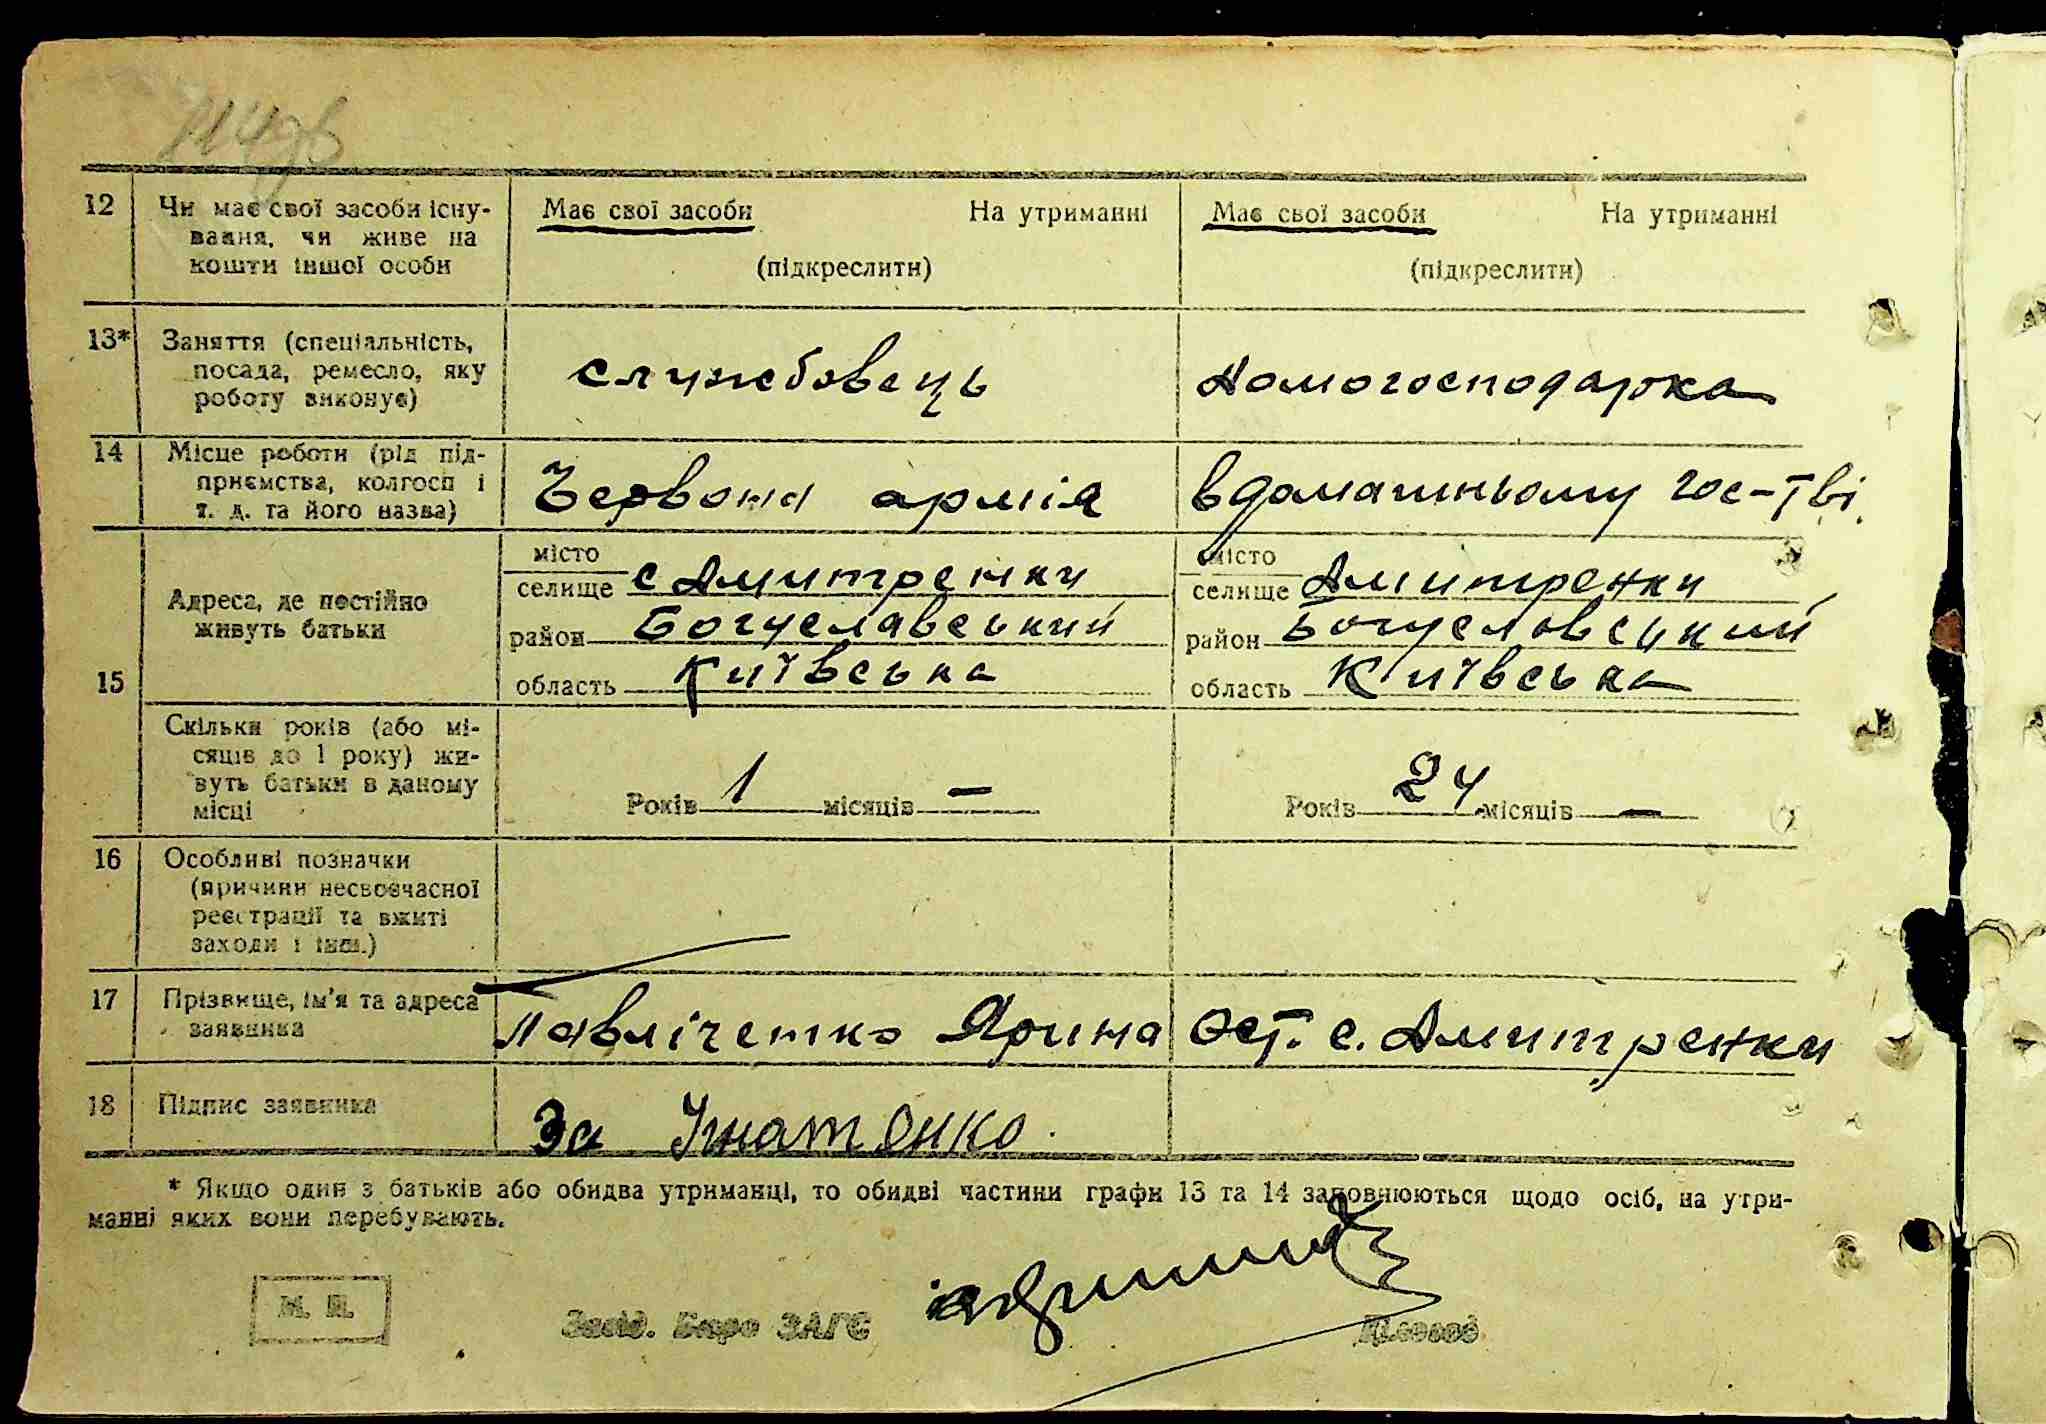 12 Чи має свої засоби існу- Має свої засоби На утриманні Має свої засоби На утриманні
вання, чи живе на
кошти іншої особи (підкреслити) (підкреслити)
13* Заняття (спеціальність,
посада, ремесло, яку службовець домогосподарка
роботу виконує)
14 Місце роботи (рід під-
приємства, колгосп і Червона армія в домашньому гос-тві
т. д. та його назва)
місто місто
селище с Дмитренки селище Дмитренки
Адреса, де постійно
живуть батьки район Богуславський район Богуславський
15 область Київська область Київська
Скільки років (або мі-
сяців до 1 року) жи-
вуть батьки в даному
місці Років 1 місяців — Років 24 місяців —
16 Особливі позначки
(причини несвоєчасної
реєстрації та вжиті
заходи і інш.)
17 Прізвище, ім'я та адреса
заявника Павліченко Ярина Ост. с. Дмитренки
18 Підпис заявника За Ігнатенко
* Якщо один з батьків або обидва утриманці, то обидві частини графи 13 та 14 заповнюються щодо осіб, на утри-
манні яких вони перебувають.
М. П. Завід. Бюро ЗАГС Діловод